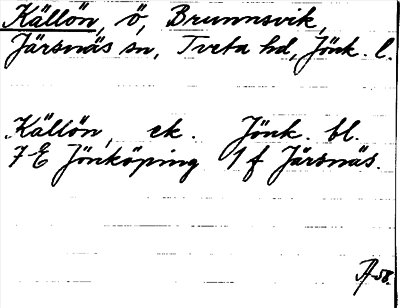 Källön, ö, Brunnsvik,
Järsnäs sn, Tveta hd, Jönk. l.
Källön, ek. Jönk. bl.
7 E Jönköping 1 f Järsnäs.